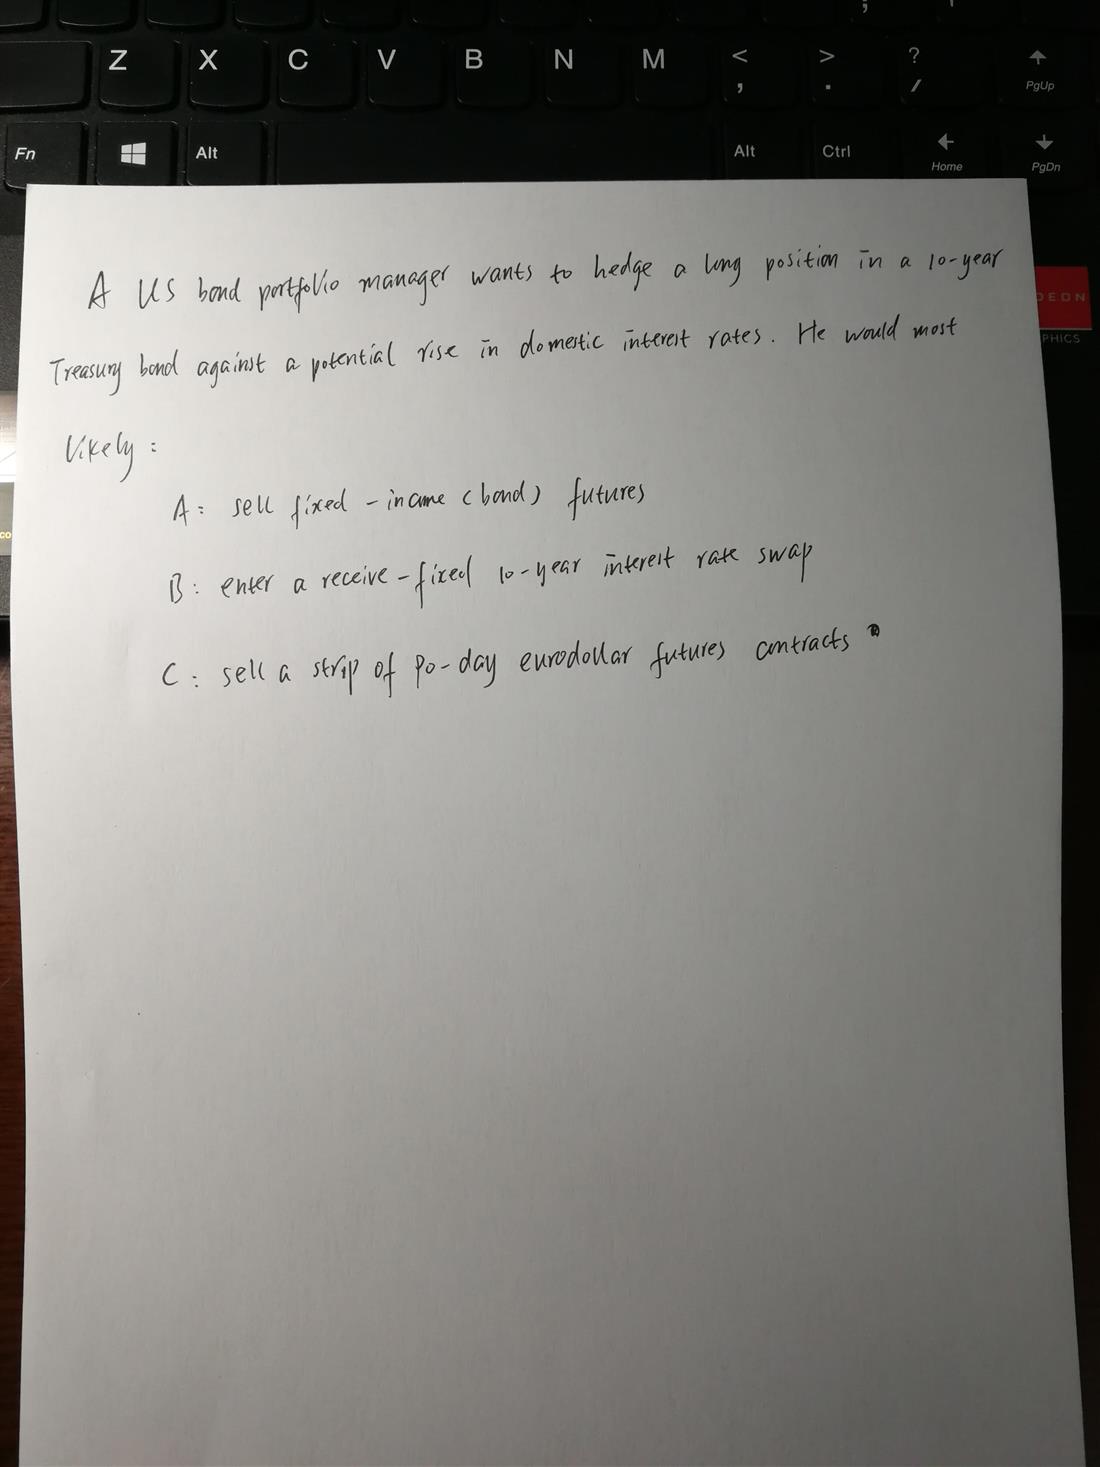 ;
Z X C V B N M < , > . ? / PgUp
Fn Alt Alt Ctrl Home PgDn
A US bond portfolio manager wants to hedge a long position in a 10-year
DEON
PHICS
Treasury bond against a potential rise in domestic interest rates. He would most
likely:
A: sell fixed-income (bond) futures
co
B: enter a receive-fixed 10-year interest rate swap
C: sell a strip of 90-day eurodollar futures contracts